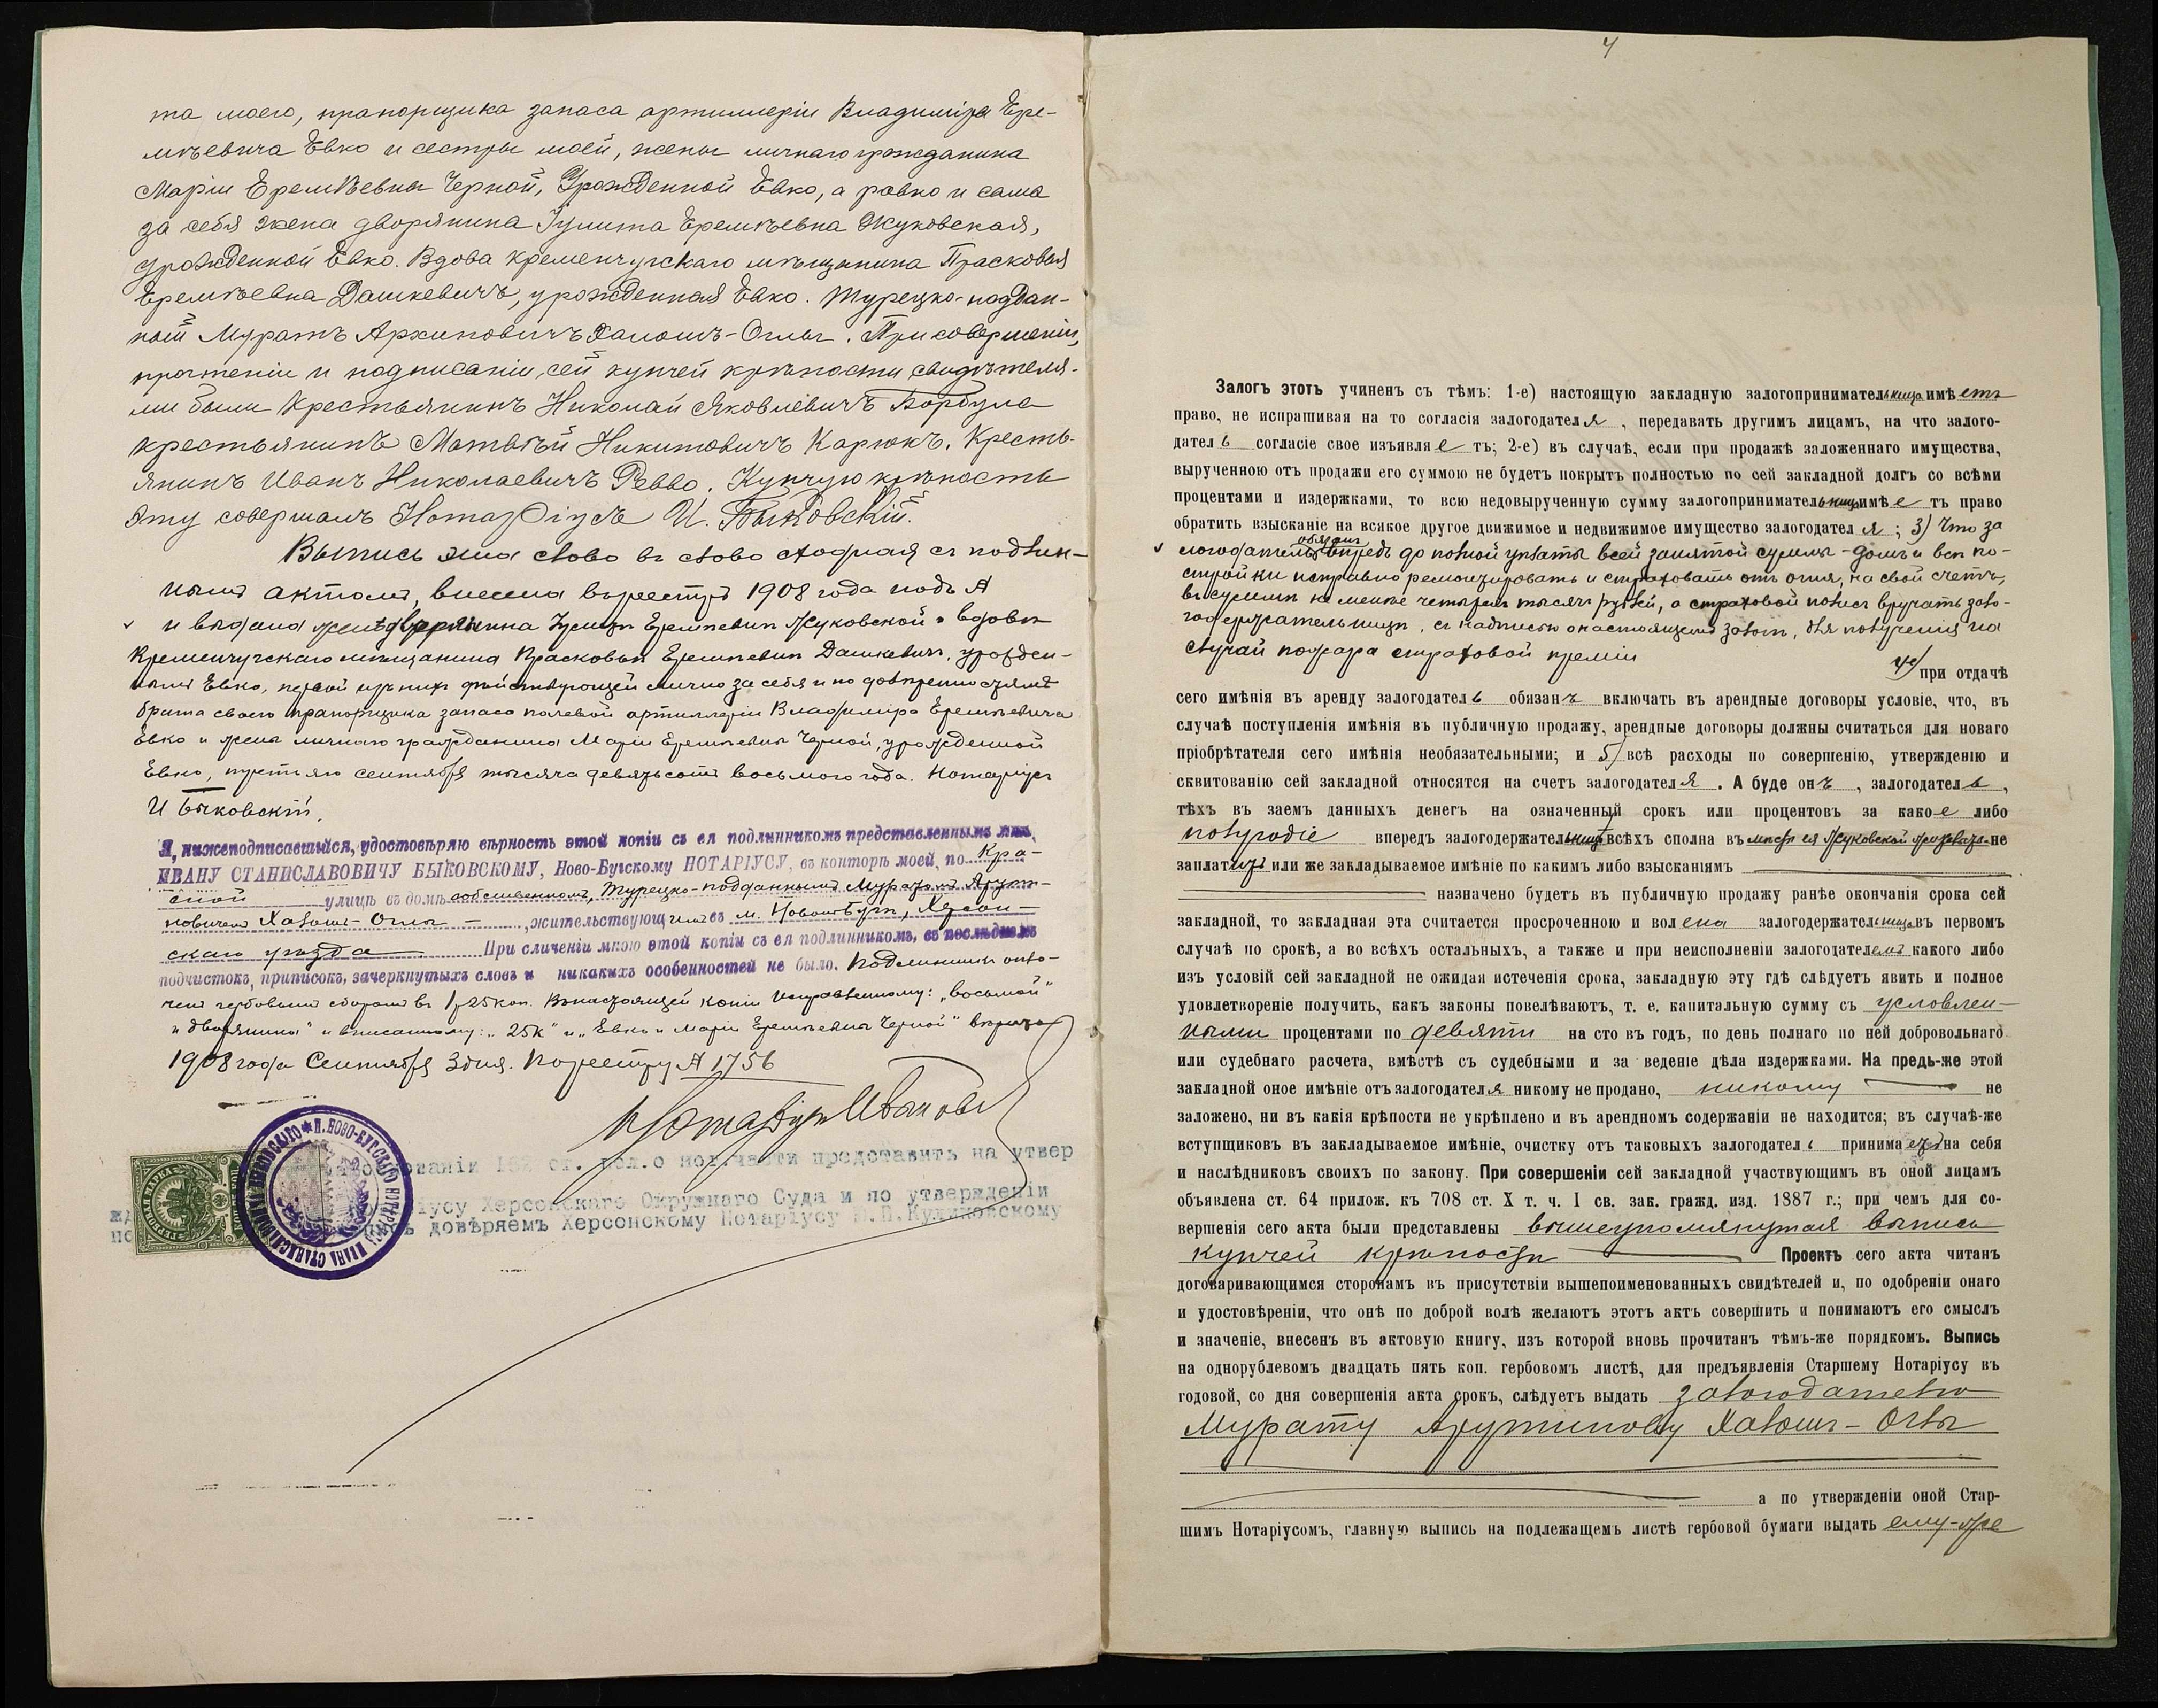 та моего, прапорщика запаса артиллеріи Владиміра Ере-
мѣевича Евко и сестры моей, жены личнаго гражданина
Маріи Еремѣевны Черной, Урожденной Евко, а равно и сама
за себя жена дворянина Іулита Еремѣевна Жуковская,
урожденной Евко. Вдова кременчугскаго мѣщанина Прасковья
Еремѣевна Дашкевичъ, урожденная Евко. Турецко-поддан-
ной Муратъ Архиповичъ Халошъ-Оглы. При совершеніи,
прочтеніи и подписаніи, сей купчей крѣпости свидѣтеля-
ми были Крестьянинъ Николай Яковлевичъ Борбула
крестьянинъ Матвѣй Никитовичъ Карюкъ, Кресть-
янинъ Иванъ Николаевичъ Ревво. Купчую крѣпость
эту совершалъ Нотаріусъ И. Быковскій.
Выпись эта слово въ слово сходная съ подлин-
нымъ актомъ, внесена въ реестръ 1908 года подъ №
и выдана женѣ дворянина Іулитѣ Еремѣевнѣ Жуковской и вдовѣ
Кременчугскаго мѣщанина Прасковьѣ Еремѣевнѣ Дашкевичъ, урожден-
нымъ Евко, первой изъ нихъ дѣйствующей лично за себя и по довѣренностямъ
брата своего прапорщика запаса полевой артиллеріи Владиміра Еремѣевича
Евко и жены личнаго гражданина Маріи Еремѣевны Черной, урожденной
Евко, третьяго сентября тысяча девятьсотъ восьмого года. Нотаріусъ
И Быковскій.
Я, нижеподписавшійся, удостовѣряю вѣрность этой копіи съ ея подлинникомъ представленнымъ мнѣ,
ИВАНУ СТАНИСЛАВОВИЧУ БЫКОВСКОМУ, Ново-Бугскому НОТАРІУСУ, въ конторѣ моей, по Кра-
сной улицѣ въ домѣ собственномъ, Турецко-подданнымъ Муратомъ Арути-
новичемъ Халошъ-Оглы — , жительствующимъ въ м. Новомъ-Бугѣ, Херсон-
скаго уѣзда При сличеніи мною этой копіи съ ея подлинникомъ, въ послѣднемъ
подчистокъ, приписокъ, зачеркнутыхъ словъ и никакихъ особенностей не было. Подлинникъ опла-
ченъ гербовымъ сборомъ въ 1р25коп. Въ настоящей копіи исправленному: „восьмой"
и „дворянина" и вписанному: „25к" и „Евко и Маріи Еремѣевны Черной" вѣрить
1908 года Сентября 3 дня. По реестру № 1756
Нотаріусъ И Быковскій
ованіи ст. пол. о нот. части представить на утвер
іусу Херсонскаго Окружнаго Суда и по утвержденіи
довѣряемъ Херсонскому Нотаріусу
П. НОВО-БУГСКАГО НОТАРІУСА ИВАНА СТАНИСЛАВОВИЧА БЫКОВСКАГО
4
Залогъ этотъ учиненъ съ тѣмъ: 1-е) настоящую закладную залогопринимательница имѣетъ
право, не испрашивая на то согласія залогодателя , передавать другимъ лицамъ, на что залого-
датель согласіе свое изъявляетъ; 2-е) въ случаѣ, если при продажѣ заложеннаго имущества,
вырученною отъ продажи его суммою не будетъ покрытъ полностью по сей закладной долгъ со всѣми
процентами и издержками, то всю недовырученную сумму залогопринимательница имѣетъ право
обратить взысканіе на всякое другое движимое и недвижимое имущество залогодателя ; 3) Что за
логодатель обязанъ впредь до полной уплаты всей занятой суммы - домъ и всѣ по-
стройки исправно ремонтировать и страховать отъ огня, на свой счетъ,
въ суммѣ не менѣе четырехъ тысячъ рублей, а страховой полисъ вручать зало-
годержательницѣ, съ надписью о настоящемъ залогѣ, для полученія на
случай пожара страховой преміи
4е) при отдачѣ
сего имѣнія въ аренду залогодатель обязанъ включать въ арендные договоры условіе, что, въ
случаѣ поступленія имѣнія въ публичную продажу, арендные договоры должны считаться для новаго
пріобрѣтателя сего имѣнія необязательными; и 5) всѣ расходы по совершенію, утвержденію и
сквитованію сей закладной относятся на счетъ залогодателя . А буде онъ , залогодатель ,
тѣхъ въ заемъ данныхъ денегъ на означенный срокъ или процентовъ за какое либо
полугодіе впередъ залогодержательницѣ всѣхъ сполна въ мѣстѣ ея Жуковской жительства не
заплатитъ или же закладываемое имѣніе по какимъ либо взысканіямъ
назначено будетъ въ публичную продажу ранѣе окончанія срока сей
закладной, то закладная эта считается просроченною и волена залогодержательница въ первомъ
случаѣ по срокѣ, а во всѣхъ остальныхъ, а также и при неисполненіи залогодателемъ какого либо
изъ условій сей закладной не ожидая истеченія срока, закладную эту гдѣ слѣдуетъ явить и полное
удовлетвореніе получить, какъ законы повелѣваютъ, т. е. капитальную сумму съ условлен-
ными процентами по девяти на сто въ годъ, по день полнаго по ней добровольнаго
или судебнаго расчета, вмѣстѣ съ судебными и за веденіе дѣла издержками. На предь-же этой
закладной оное имѣніе отъ залогодателя никому не продано, никому не
заложено, ни въ какія крѣпости не укрѣплено и въ арендномъ содержаніи не находится; въ случаѣ-же
вступщиковъ въ закладываемое имѣніе, очистку отъ таковыхъ залогодатель принимаетъ на себя
и наслѣдниковъ своихъ по закону. При совершеніи сей закладной участвующимъ въ оной лицамъ
объявлена ст. 64 прилож. къ 708 ст. X т. ч. I св. зак. гражд. изд. 1887 г.; при чемъ для со-
вершенія сего акта были представлены вышеупомянутая выпись
купчей крѣпости Проектъ сего акта читанъ
договаривающимся сторонамъ въ присутствіи вышепоименованныхъ свидѣтелей и, по одобреніи онаго
и удостовѣреніи, что онѣ по доброй волѣ желаютъ этотъ актъ совершить и понимаютъ его смыслъ
и значеніе, внесенъ въ актовую книгу, изъ которой вновь прочитанъ тѣмъ-же порядкомъ. Выпись
на однорублевомъ двадцать пять коп. гербовомъ листѣ, для предъявленія Старшему Нотаріусу въ
годовой, со дня совершенія акта срокъ, слѣдуетъ выдать залогодателю
Мурату Арутинову Халошъ-Оглы
а по утвержденіи оной Стар-
шимъ Нотаріусомъ, главную выпись на подлежащемъ листѣ гербовой бумаги выдать ему-же